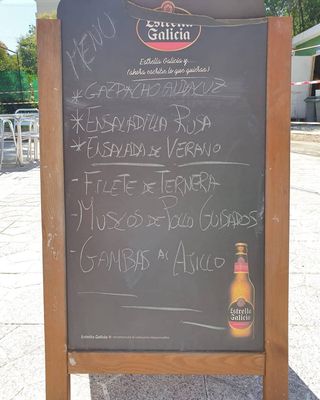 Estrella
Galicia
MENÚ
Estrella Galicia y....
(ahora escribe lo que quieras)
* GAZPACHO ANDALUZ
* ENSALADILLA RUSA
* ENSALADA DE VERANO
- FILETE DE TERNERA
- MUSLOS DE POLLO GUISADOS
- GAMBAS AL AJILLO
Estrella
Galicia
Estrella Galicia